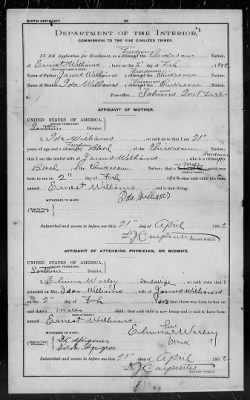 BIRTH AFFIDAVIT.
DEPARTMENT OF THE INTERIOR,
COMMISSION TO THE FIVE CIVILIZED TRIBES.
IN RE Application for Enrollment, as a citizen of the Chickasaw Nation,
of Ernest Williams, born on the 2" day of Feb, 1902
Name of Father: James Williams a citizen of the Chickasaw Nation.
Name of Mother: Ida Williams a citizen of the Chickasaw Nation.
AFFIDAVIT OF MOTHER.
UNITED STATES OF AMERICA,
INDIAN TERRITORY,
Southern District.
I, Ida Williams, on oath state that I am 21
years of age and a citizen by Blood, of the Chickasaw Nation;
that I am the lawful wife of James Williams, who is a citizen, by
Blood of the Chickasaw Nation; that a male child was born to me
on 2" day of Feb, 1902; that said child has been
named Ernest Williams, and is now living.
Ida Williams
Subscribed and sworn to before me this 21" day of April 1902
Carpenter
NOTARY PUBLIC.
AFFIDAVIT OF ATTENDING PHYSICIAN, OR MIDWIFE.
UNITED STATES OF AMERICA,
INDIAN TERRITORY,
Southern District.
I, a midwife, on oath state that I
attended on Mrs. Ida Williams, wife of James Williams
on the 2" day of Feb, 1902; that there was born to her on
said date a male child; that said child is now living and is said to have been
named Ernest Williams
her
mark
Subscribed and sworn to before me this 21" day of April 1902
Carpenter
NOTARY PUBLIC.